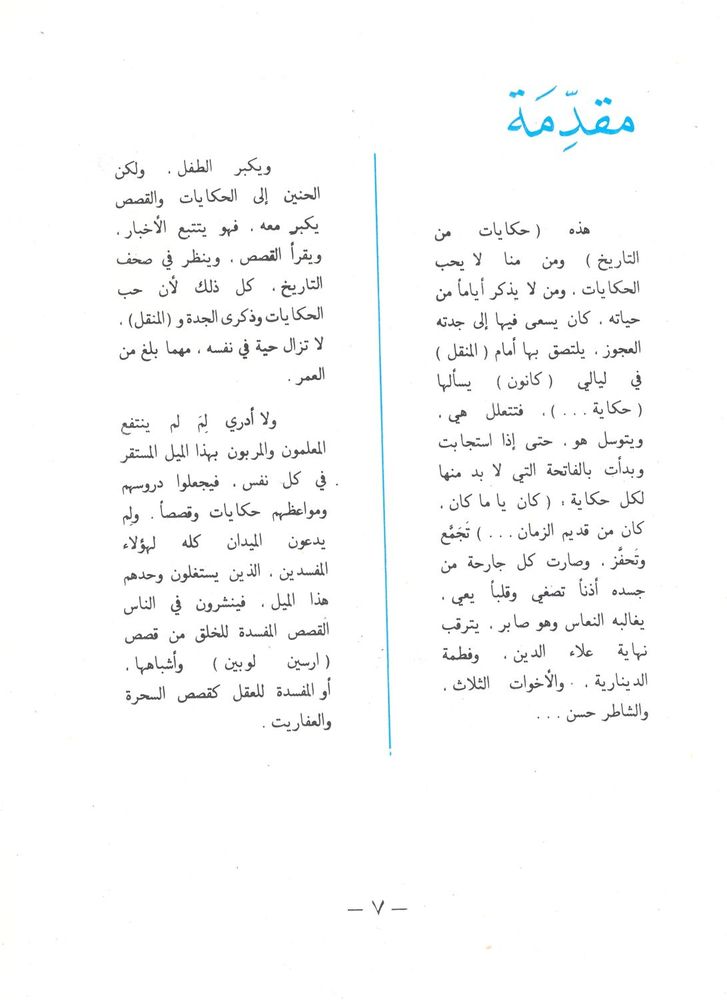 مقدِّمَة
هذه ( حكايات من
التاريخ ) ومن منا لا يحب
الحكايات ، ومن لا يذكر أياماً من
حياته ، كان يسعى فيها إلى جدته
العجوز ، يلتصق بها أمام ( المنقل )
في ليالي ( كانون ) يسألها
( حكاية ... ) ، فتتعلل هي ،
ويتوسل هو ، حتى إذا استجابت
وبدأت بالفاتحة التي لا بد منها
لكل حكاية : ( كان يا ما كان ،
كان من قديم الزمان ... ) تَجَمَّع
وتَحفَّز ، وصارت كل جارحة من
جسده أذناً تصغي وقلباً يعي ،
يغالبه النعاس وهو صابر ، يترقب
نهاية علاء الدين ، وفطمة
الدينارية ، والأخوات الثلاث ،
والشاطر حسن ...
ويكبر الطفل ، ولكن
الحنين إلى الحكايات والقصص
يكبر معه ، فهو يتتبع الأخبار ،
ويقرأ القصص ، وينظر في صحف
التاريخ ، كل ذلك لأن حب
الحكايات وذكرى الجدة و ( المنقل ) ،
لا تزال حية في نفسه ، مهما بلغ من
العمر .
ولا أدري لِمَ لم ينتفع
المعلمون والمربون بهذا الميل المستقر
في كل نفس ، فيجعلوا دروسهم
ومواعظهم حكايات وقصصاً . ولِم
يدعون الميدان كله لهؤلاء
المفسدين ، الذين يستغلون وحدهم
هذا الميل ، فينشرون في الناس
القصص المفسدة للخلق من قصص
( ارسين لوبين ) وأشباهها ،
أو المفسدة للعقل كقصص السحرة
والعفاريت .
— ٧ —